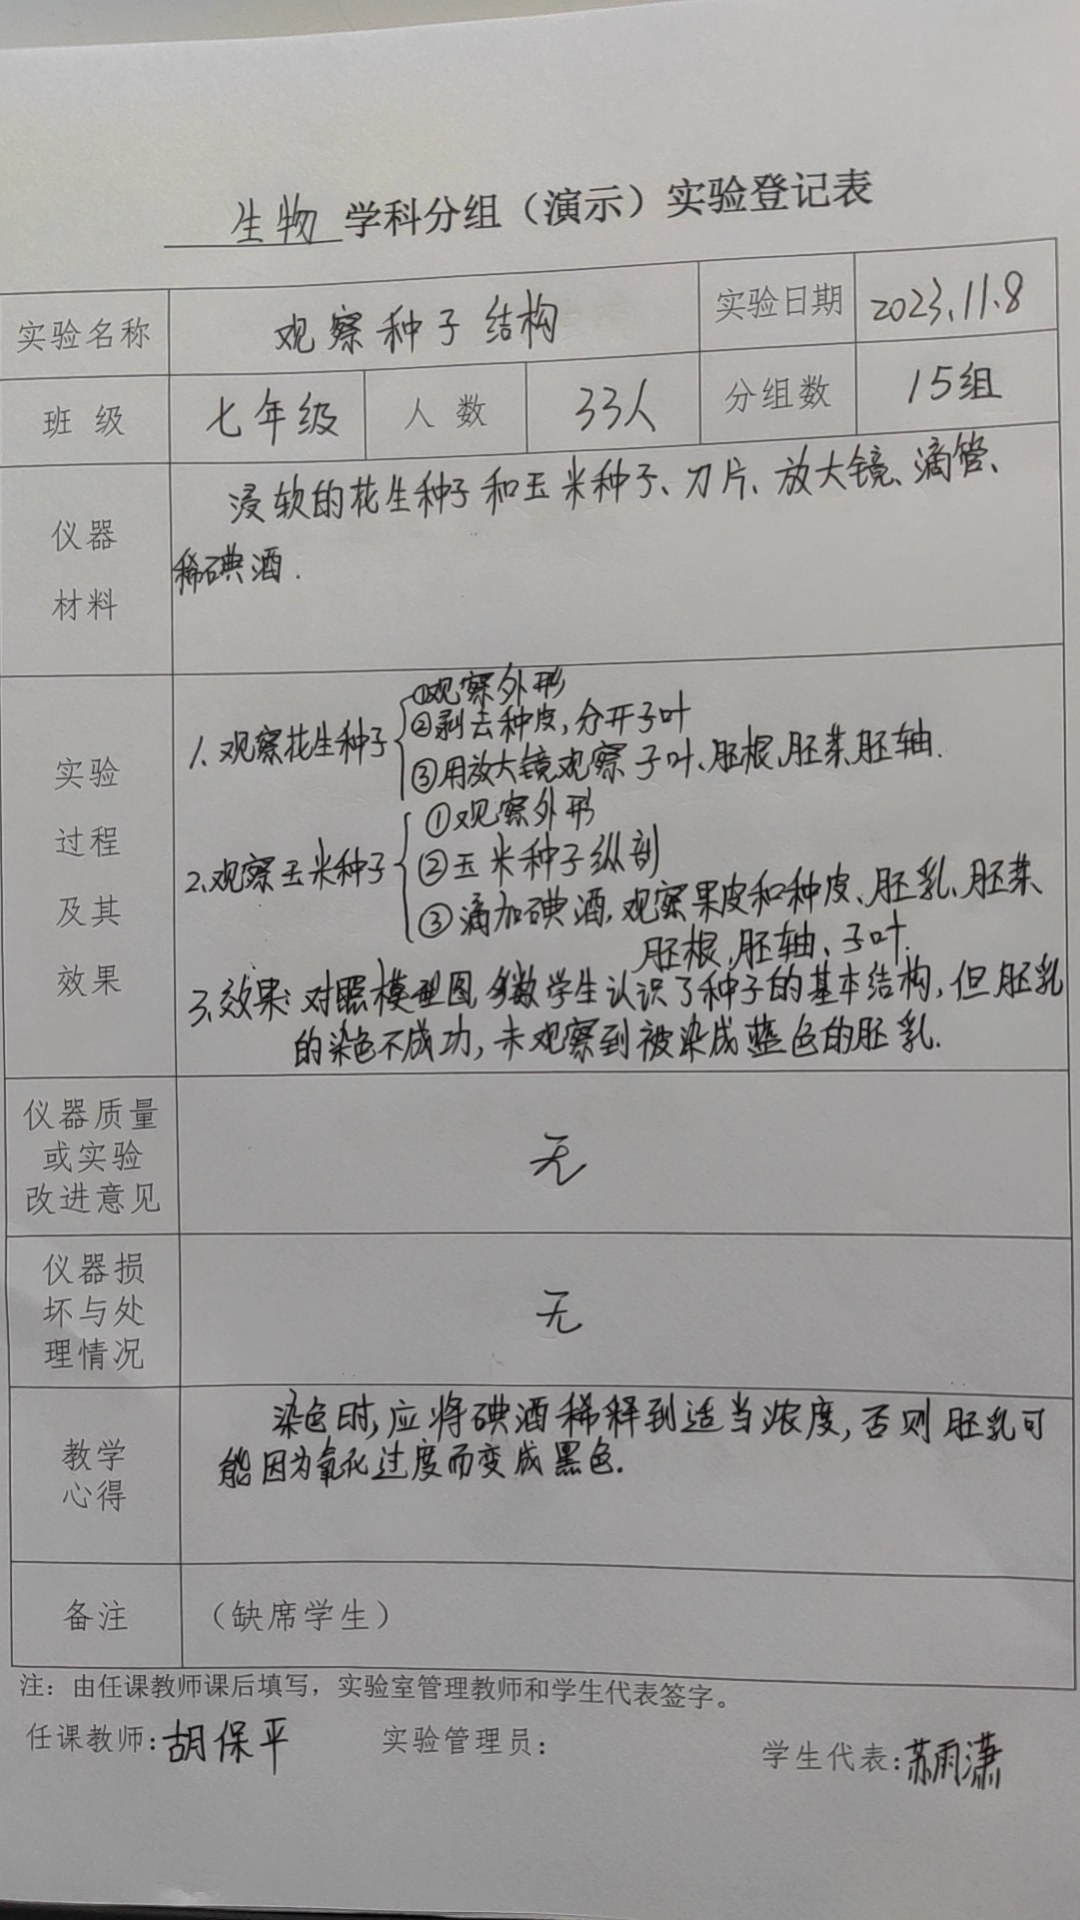 生物 学科分组（演示）实验登记表
实验名称 观察种子结构 实验日期 2023.11.8
班 级 七年级 人 数 33人 分组数 15组
仪器
材料
浸软的花生种子和玉米种子、刀片、放大镜、滴管、
稀碘酒.
实验
过程
及其
效果
1.观察花生种子
①观察外形
②剥去种皮,分开子叶
③用放大镜观察子叶、胚根,胚芽,胚轴.
2.观察玉米种子
①观察外形
②玉米种子纵剖
③滴加碘酒,观察果皮和种皮、胚乳、胚芽、
胚根,胚轴、子叶.
3.效果:对照模型图多数学生认识了种子的基本结构,但胚乳
的染色不成功,未观察到被染成蓝色的胚乳.
仪器质量
或实验
改进意见
无
仪器损
坏与处
理情况
无
教学
心得
染色时,应将碘酒稀释到适当浓度,否则胚乳可
能因为氧化过度而变成黑色.
备注 （缺席学生）
注：由任课教师课后填写，实验室管理教师和学生代表签字。
任课教师:胡保平 实验管理员： 学生代表:苏雨潇